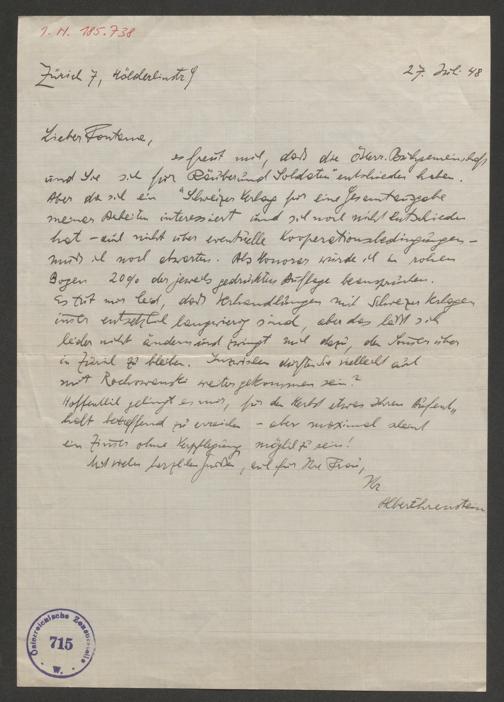 I.N. 185.738
Zürich 7, Hölderlinstr 9
27. Juli 48
Lieber Fontana,
es freut mich, daß die Österr. Buchgemeinschaft
und Sie sich für "Räuber und Soldaten" entschieden haben.
Aber da sich ein Schweizer Verlag für eine Gesamtausgabe
meiner Arbeiten interessiert und sich noch nicht entschieden
hat – auch nicht über eventuelle Kooperationsbedingungen –
muß ich noch abwarten. Als Honorar würde ich in rohen
Bogen 20% der jeweils gedruckten Auflage beanspruchen.
Es tut mir leid, daß Verhandlungen mit Schweizer Verlagen
immer entsetzlich langwierig sind, aber das läßt sich
leider nicht ändern und zwingt mich dazu, den Sommer über
in Zürich zu bleiben. Inzwischen dürften Sie vielleicht auch
mit Rochowanski weitergekommen sein?
Hoffentlich gelingt es mir, für den Herbst etwas Ihren Aufent-
halt betreffend zu erreichen – aber maximal scheint
ein Zimmer ohne Verpflegung möglich zu sein!
Mit vielen herzlichen Grüßen, auch für Ihre Frau,
Ihr
Albert Ehrenstein
Österreichische Zensurstelle
715
W.